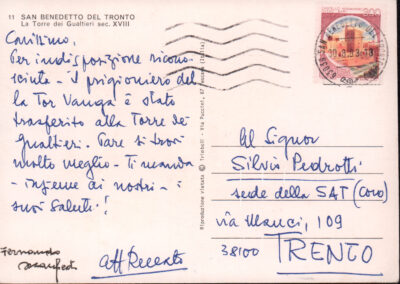 11 SAN BENEDETTO DEL TRONTO
La Torre dei Gualtieri sec. XVIII
Carissimo,
Per indisposizione ricono-
sciuta - il prigioniero del
la Tor Vanga è stato
trasferito alla Torre dei
Gualtieri. Pare si trovi
molto meglio - Ti manda
- insieme ai nostri - i
suoi saluti!
Fernando
aff
Riproduzione vietata © Trieboll - Via Puccini, 67
200
Al Signor
Silvio Pedrotti
sede della SAT (Coro)
via Manci, 109
38100 TRENTO